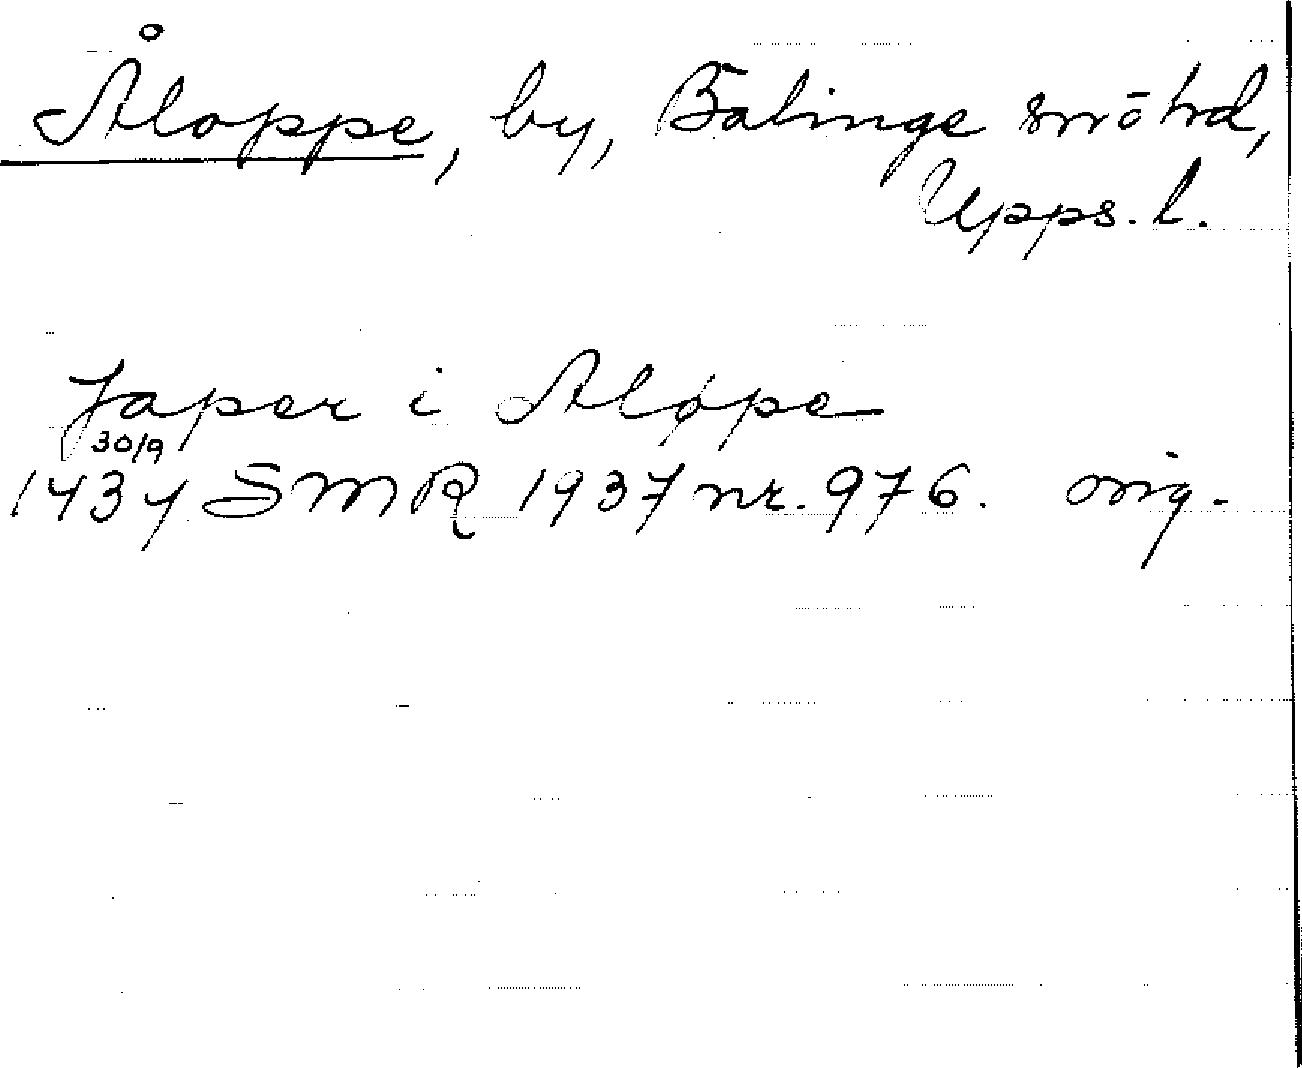 Åloppe, by, Bälinge snöhd,
Upps. l.
Japer i Aløpe
30/9
1434 SMR 1937 nr. 976. orig.